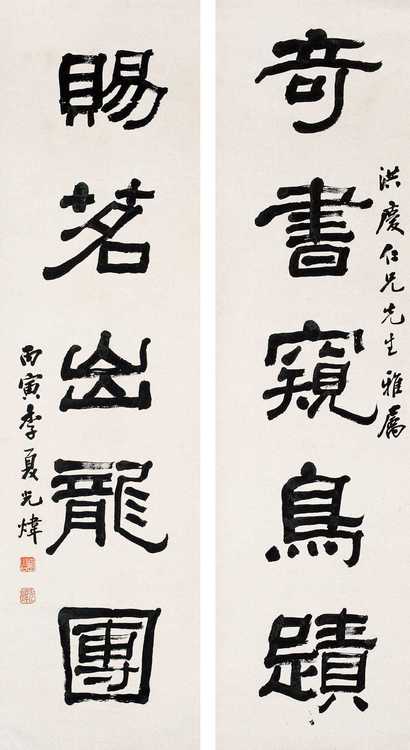 奇書窺鳥蹟
洪慶仁兄先生雅属
賜茗出龍團
丙寅季夏光煒